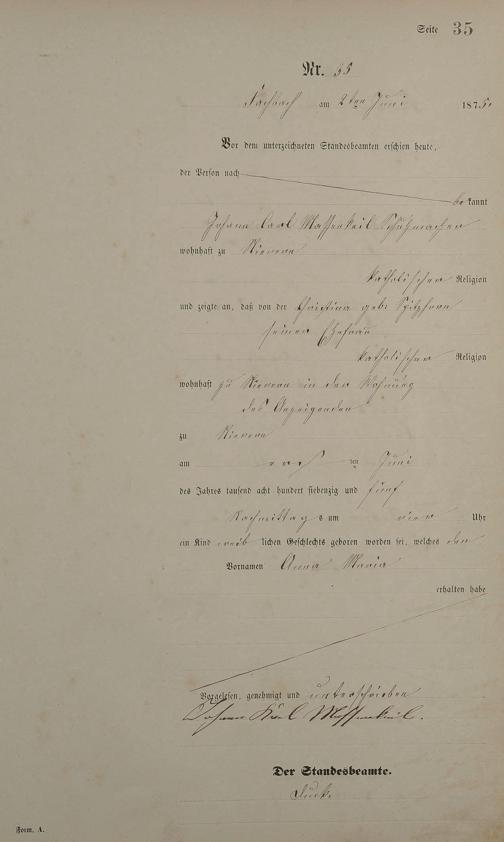 Seite 35
Nr. 35
Fachbach am 2ten Juni 1875.
Vor dem unterzeichneten Standesbeamten erschien heute,
der Person nach
be kannt
Johann Carl Massenkeil Schuhmacher
wohnhaft zu Nievern
katholischer Religion
und zeigte an, daß von der Christina geb. Spitzhorn
seiner Ehefrau
katholischer Religion
wohnhaft zu Nievern in der Wohnung
des Anzeigenden
zu Nievern
am ten Juni
des Jahres tausend acht hundert siebenzig und fünf
Nachmittag s um vier Uhr
ein Kind weib lichen Geschlechts geboren worden sei, welches den
Vornamen Anna Maria
erhalten habe
Vorgelesen, genehmigt und unterschrieben
Johann Karl Massenkeil.
Der Standesbeamte.
Form. A.